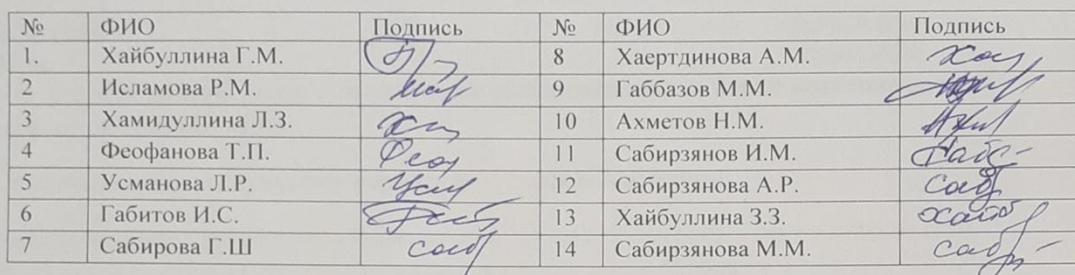 № ФИО Подпись № ФИО Подпись
1. Хайбуллина Г.М. 8 Хаертдинова А.М.
2 Исламова Р.М. 9 Габбазов М.М.
3 Хамидуллина Л.З. 10 Ахметов Н.М.
4 Феофанова Т.П. 11 Сабирзянов И.М.
5 Усманова Л.Р. 12 Сабирзянова А.Р.
6 Габитов И.С. 13 Хайбуллина З.З.
7 Сабирова Г.Ш 14 Сабирзянова М.М.